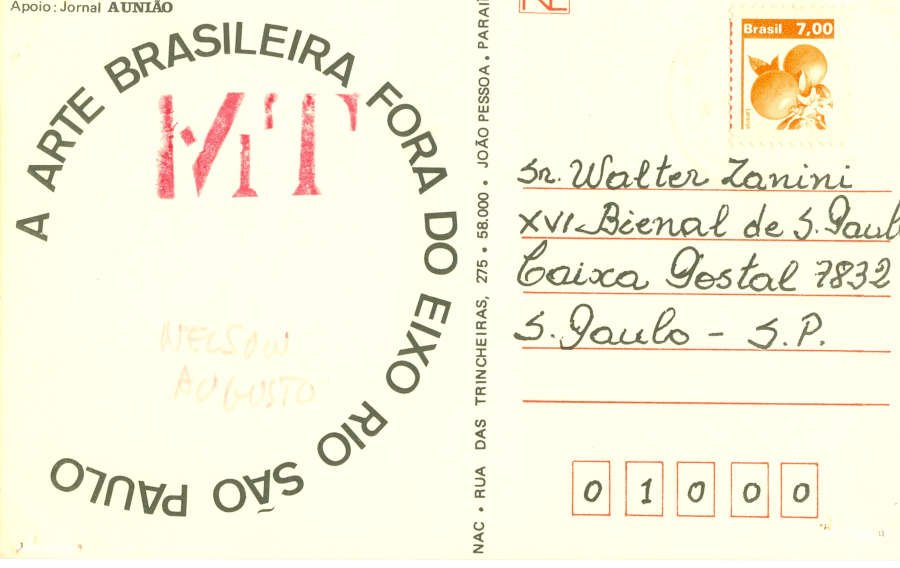 Apoio: Jornal A UNIÃO
A ARTE BRASILEIRA FORA DO EIXO RIO SÃO PAULO
MT
NELSON
AUGUSTO
NAC • RUA DAS TRINCHEIRAS, 275 • 58.000 • JOÃO PESSOA • PARAÍ
Brasil 7,00
Sr. Walter Zanini
XVI Bienal de S. Paul
Caixa Postal 7832
S. Paulo - S.P.
0 1 0 0 0